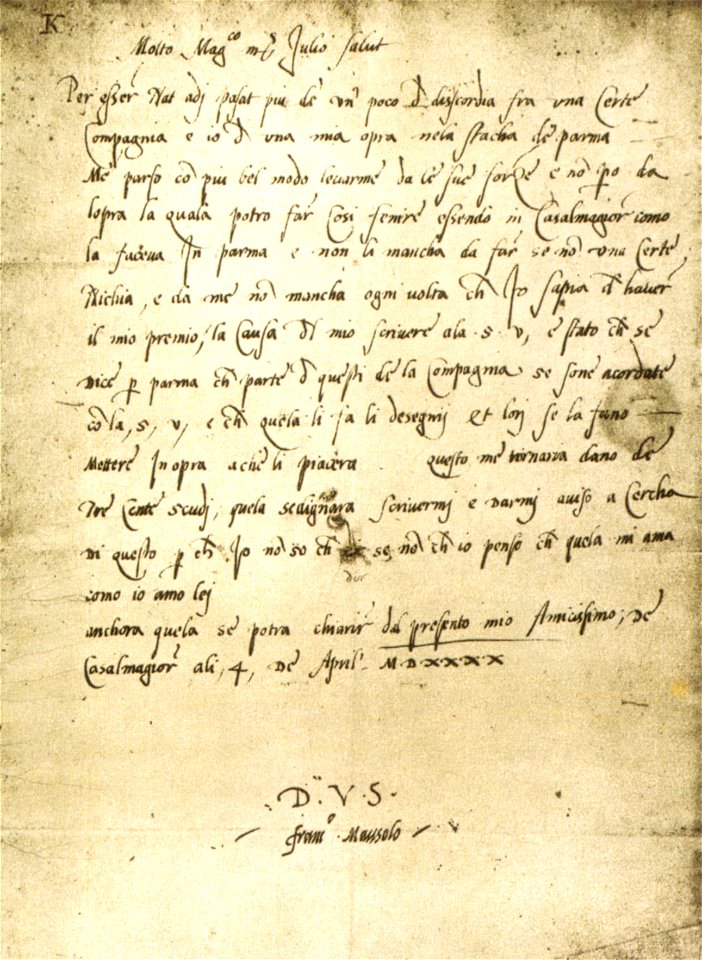 K
Molto Mag.co m. Julio salut
Per esser Nat adj pasat piu de un poco d discordia fra una Certe
Compagnia e io d una mia opra nela stacha de parma
Me parso co piu bel modo levarme da le sue forze e no p da
lopra la quala potro far Cosi fenire essendo in Casalmagior como
la faceva In parma e non li mancha da far se no una Certe
Nichia, e da me no mancha ogni volta ch Io sapia d haver
il mio premio, la Causa dl mio scrivere ala .s.v, e stato ch se
Dice p parma ch parte d questi de la Compagnia se sone acordate
co la, s, v, e ch quela li fa li desegnij et lorj se la fano
Mettere In opra a che li piacera questo me tornaria dano de
Tre Cente scudj, quela se dignara scrivermj e Darmj aviso a Cercha
Di questo p ch Io no so ch se no ch io penso ch quela mi ama
dir
como io amo lej
anchora quela se potra chiarir dal presento mio Amicissimo, De
Casalmagior ali, 4, De April MDXXXX
D. V. S.
fran.o Masolo